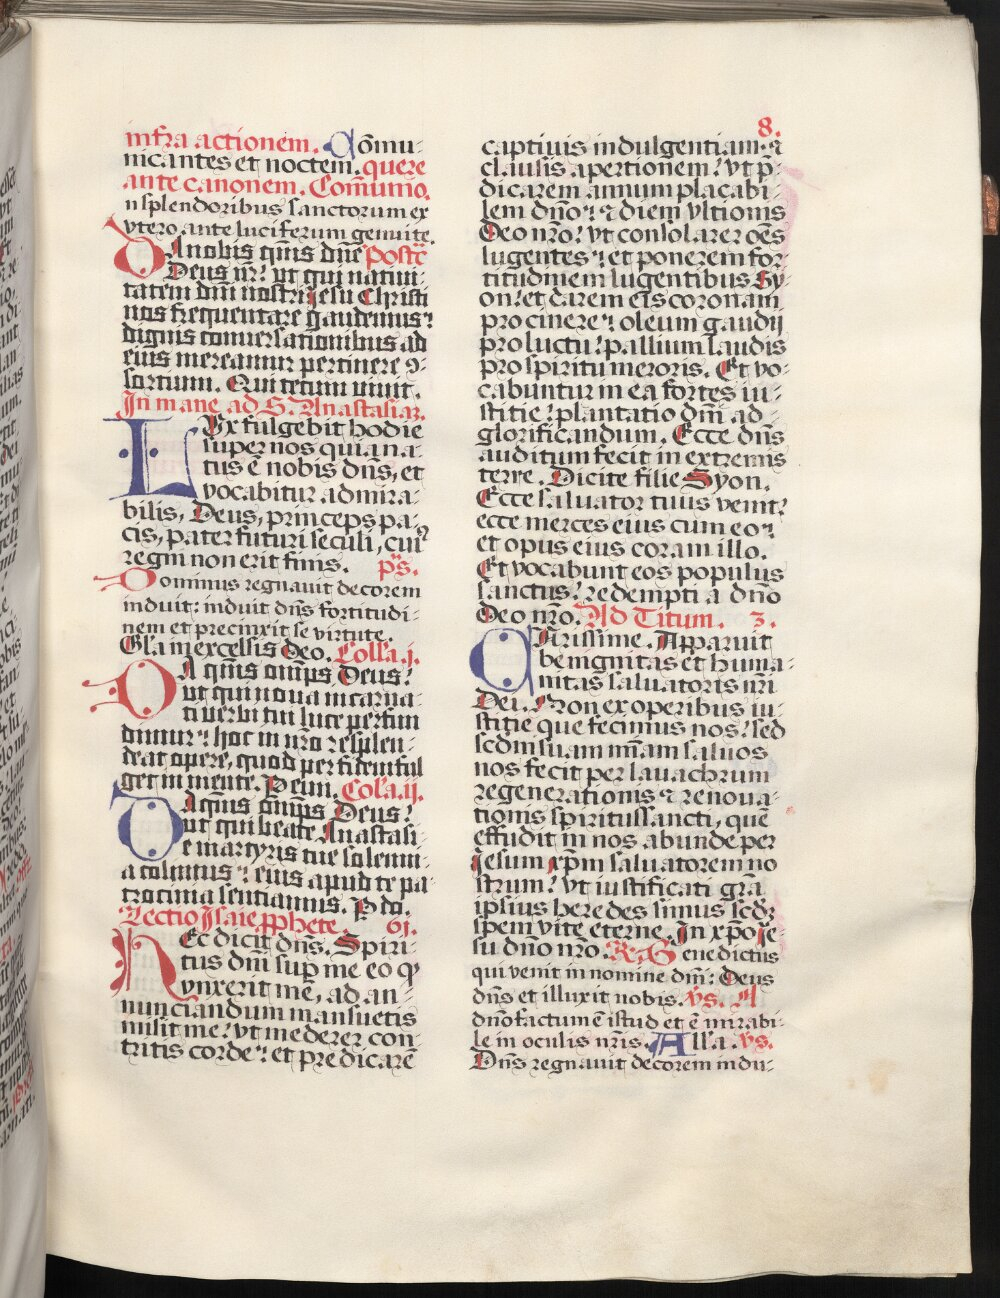 8.
infra actionem. Cõmu-
nicantes et noctem. quere
ante canonem. Com̃unio.
n splendoribus sanctorum ex
vtero ante luciferum genui te.
DA nobis quis dñe postcõ
Deus nr̃: vt qui natiui-
tatem dñi nostri iesu Christi
nos frequentare gaudemus:
dignis conuersationibus ad
eius mereamur pertinere ꝯ-
sortium. Qui tecum viuit.
In mane ad S. Anastasiaz.
LVx fulgebit hodie
super nos quia na-
tus ẽ nobis dñs, et
vocabitur admira-
bilis, Deus, princeps pa-
cis, pater futuri seculi, cuiꝰ
regni non erit finis. ps.
Dominus regnauit decorem
induit: induit dñs fortitudi-
nem et precinxit se virtute.
Gl̃a in excelsis Deo. Collã. j.
DA quis omps Deus:
vt qui noua incarna-
ti verbi tui luce perfun
dimur: hoc in nr̃o resplen-
deat opere, quod per fidem ful
get in mente. P eun. Col̃a. ij.
DA quis omps Deus:
vt qui beate Anastasi-
e martyris tue solenni-
a colimus: eius apud te pa-
trocinia sentiamus. P do.
Lectio Isaie pphete. 61.
HEc dicit dñs. Spiri-
tus dñi sup me eo ꝙ
vnxerit me, ad an-
nunciandum mansuetis
misit me: vt mederer con
tritis corde: et predicarẽ
captiuis indulgentiam: ⁊
clausis apertionem: vt p̃-
dicarem annum placabi-
lem dño: ⁊ diem vltionis
Deo nr̃o: vt consolarer oẽs
lugentes: et ponerem for
titudinem lugentibus Sy-
on: et darem eis coronam
pro cinere: oleum gaudij
pro luctu: pallium laudis
pro spiritu meroris. Et vo-
cabuntur in ea fortes iu-
stitie: plantatio dñi ad-
glorificandum. Ecce dñs
auditum fecit in extremis
terre. Dicite filie Syon.
Ecce saluator tuus venit:
ecce merces eius cum eo:
et opus eius coram illo.
Et vocabunt eos populus
sanctus: redempti a dño
Deo nr̃o. Ad Titum. 3.
CArissime. Apparuit
benignitas et huma-
nitas saluatoris nr̃i
Dei. Non ex operibus iu-
stitie que fecimus nos: sed
scdm suam mĩam saluos
nos fecit per lauachrum
regenerationis ⁊ renoua-
tionis spiritussancti, quẽ
effudit in nos abunde per
Jesum xp̃m saluatorem no
strum: vt iustificati grã
ipsius heredes simus scdz
spem vite eterne. In xp̃o Je
su dño nr̃o. R. G. Benedictus
qui venit in nomine dñi: Deus
dñs et illuxit nobis. ỹs. A
dño factum ẽ istud et ẽ mirabi-
le in oculis nr̃is. All'a. ỹs.
Dñs regnauit decorem indu-